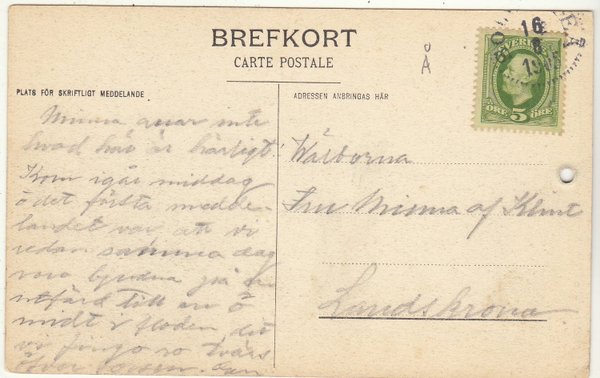 BREFKORT
CARTE POSTALE
Å
PLATS FÖR SKRIFTLIGT MEDDELANDE
ADRESSEN ANBRINGAS HÄR
SVERIGE
ÖRE 5 ÖRE
16
8
Minna anar inte
hvad här är härligt!
Kom igår middag
o det första medde
landet var att vi
redan samma dag
voro bjudna på
utfärd till en ö
midt i floden dit
vi fingo ro tvärs
öfver
Wälborna
Fru Minna af Klint
Landskrona